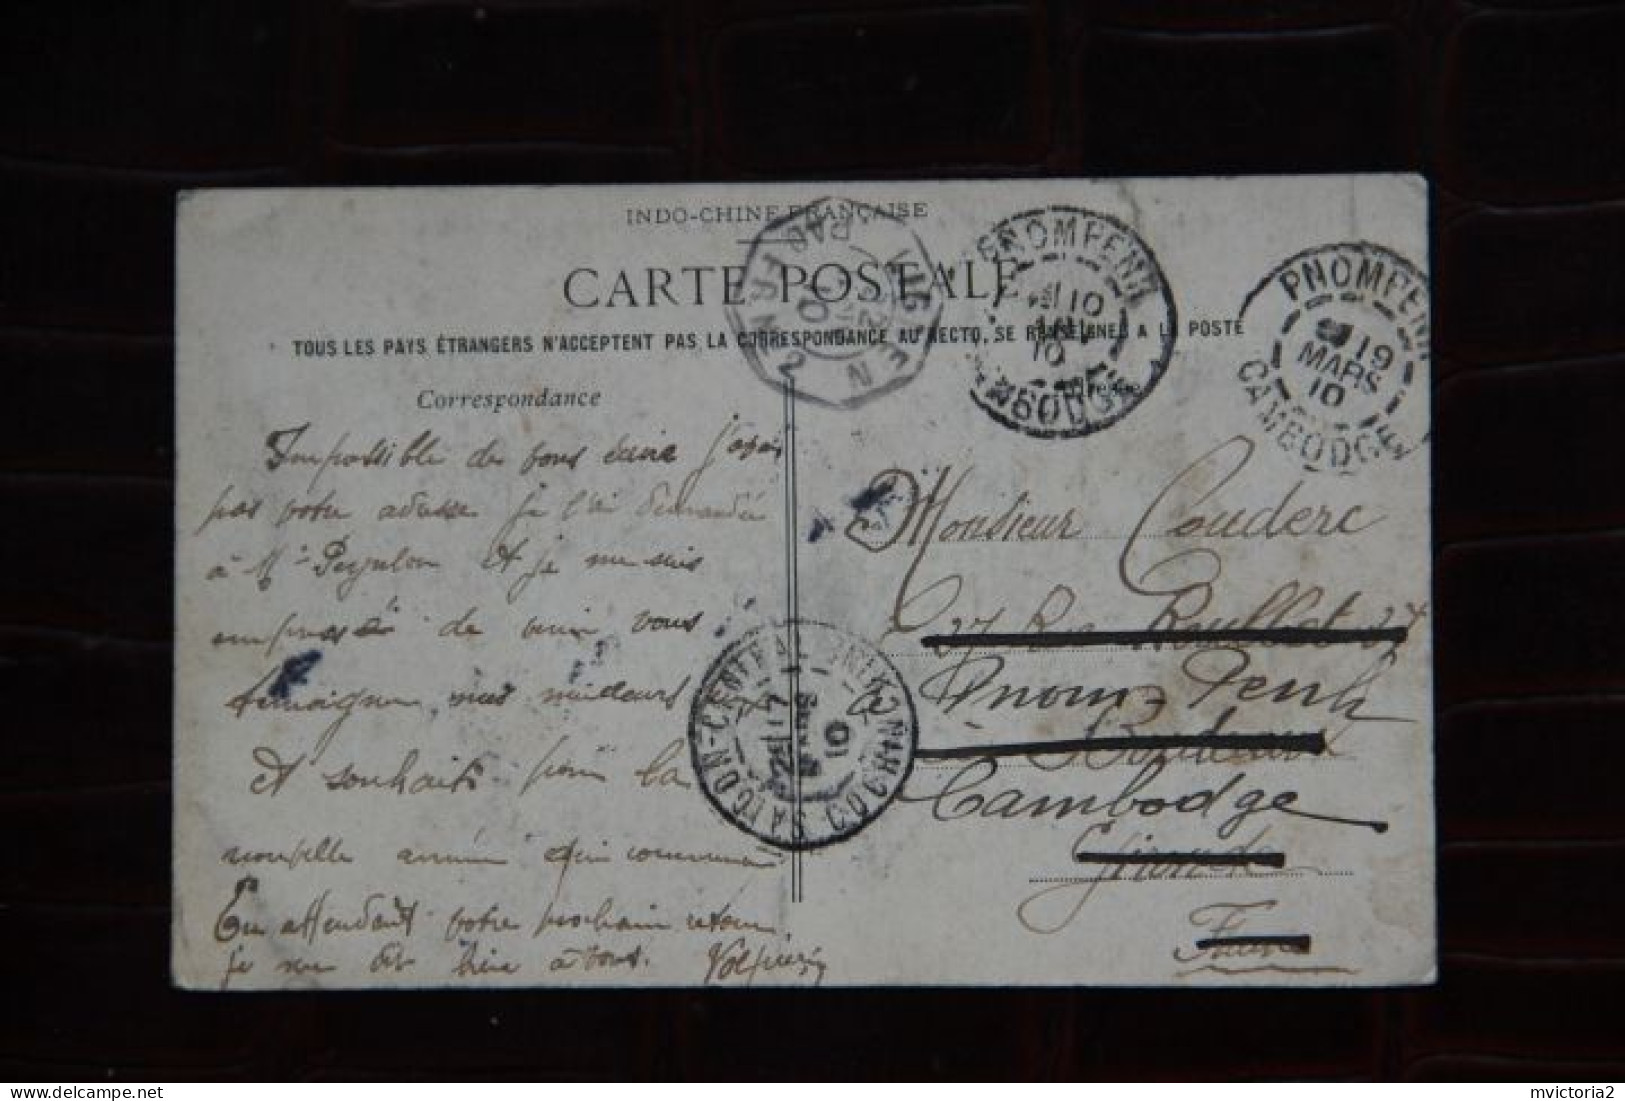 INDO-CHINE FRANÇAISE
CARTE POSTALE
TOUS LES PAYS ÉTRANGERS N'ACCEPTENT PAS LA CORRESPONDANCE AU RECTO, SE RENSEIGNER A LA POSTE
Correspondance
Impossible de vous écrire
pas votre adresse je l'ai demandée
à Mr et je me suis
empressé de venir vous
mes meilleurs
et souhaits pour la
nouvelle année qui commence
En attendant votre prochain retour
je me dis bien à vous.
Monsieur Couderc
27 Rue Roullet 27
à Pnom-Penh
Bordeaux
Cambodge
Gironde
France
PNOMPENH
10
CAMBODGE
PNOMPENH
19
MARS
10
CAMBODGE
SAIGON-CENTRAL
COCHINCHINE
10
mvictoria2